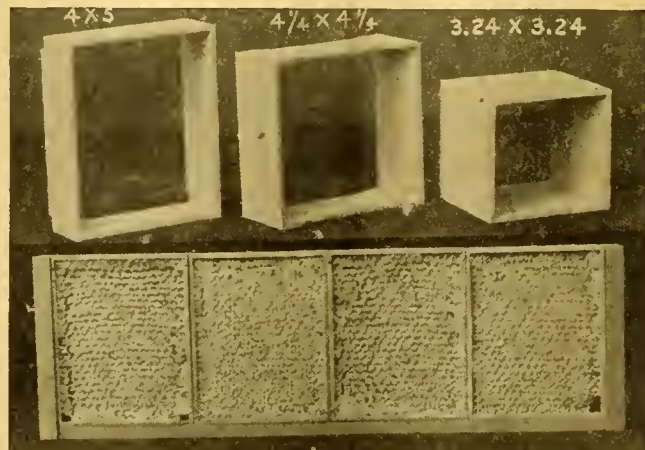 4X5 4¼ X 4¼ 3.24 X 3.24